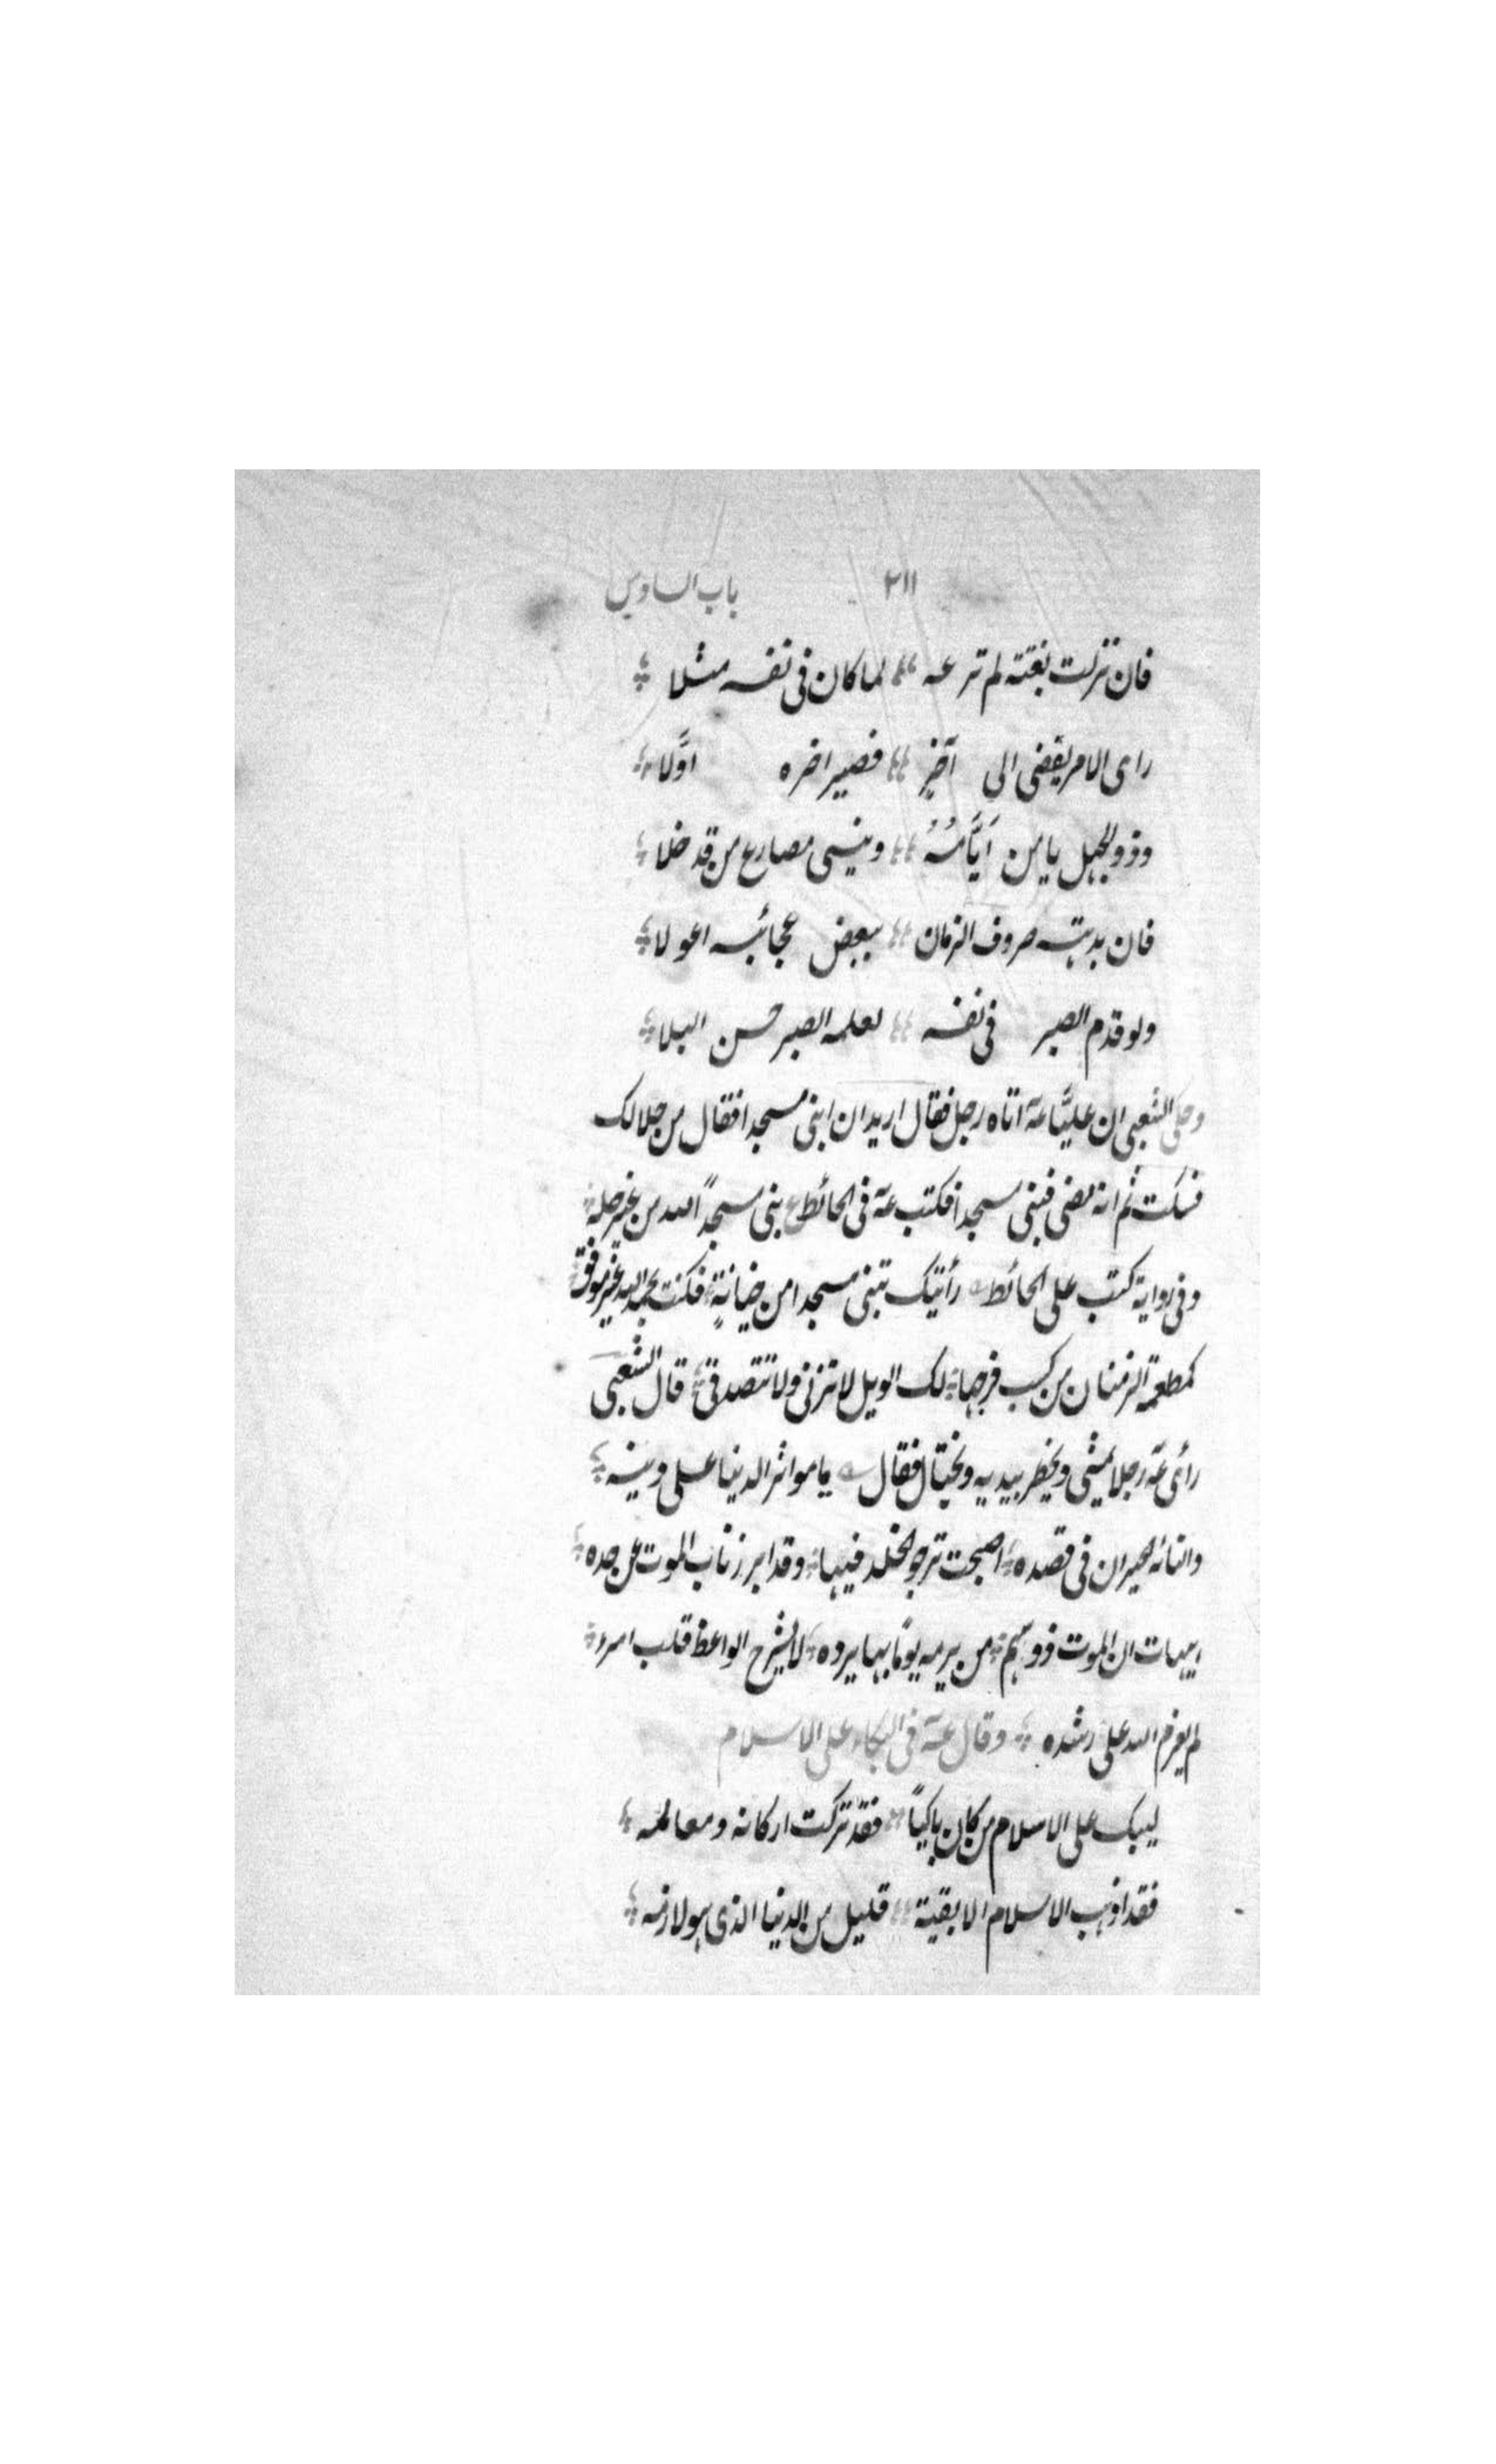 ٢١١ باب السادس
فان نزلت بغتته لم ترعه لما كان فى نفسه مثلا
راى الامر يفضى الى آخِرٍ فصير اخره اوَّلا
وذو الجهل يامن ايَّامُهُ وينسى مصارع من قد خلا
فان بدهته صروف الزمان ببعض عجائبه اعولا
ولو قدم الصبر فى نفسه لعلمه الصبر حسن البلا
وحكى الشعبى ان عليًّا عَهَ اتاه رجل فقال اريد ان ابنى مسجدا فقال من حلالك
فسكت ثم انه مضى فبنى مسجدا فكتب عَهَ فى الحائط ع بنى مسجدًا لله من غير حله
وفى رواية كتب على الحائط رأيتك تبنى مسجدا من خيانةٍ فكنت بحمد الله غير موفق
كمطعمة الرمنان من كسب فرجها لك الويل لا تزنى ولا تتصدقى قال الشعبى
رأى عَهَ رجلا يمشى ويخطر بيديه ويختال فقال يا مواثر الدنيا على دينه
والتائه الحيران فى قصده اصبحت ترجو الخلد فيها وقد ابرز ناب الموت عن حده
هيهات ان الموت ذو سهم من يرمه يومًا بها يرده لا يشرح الواعظ قلب امرء
لم يعزم الله على رشده وقال عَهَ فى البكاء على الاسلام
ليبك على الاسلام من كان باكيًا فقد تركت اركانه ومعالمه
فقد اذهب الاسلام الا بقية قليل من الدنيا الذى هو لازمه